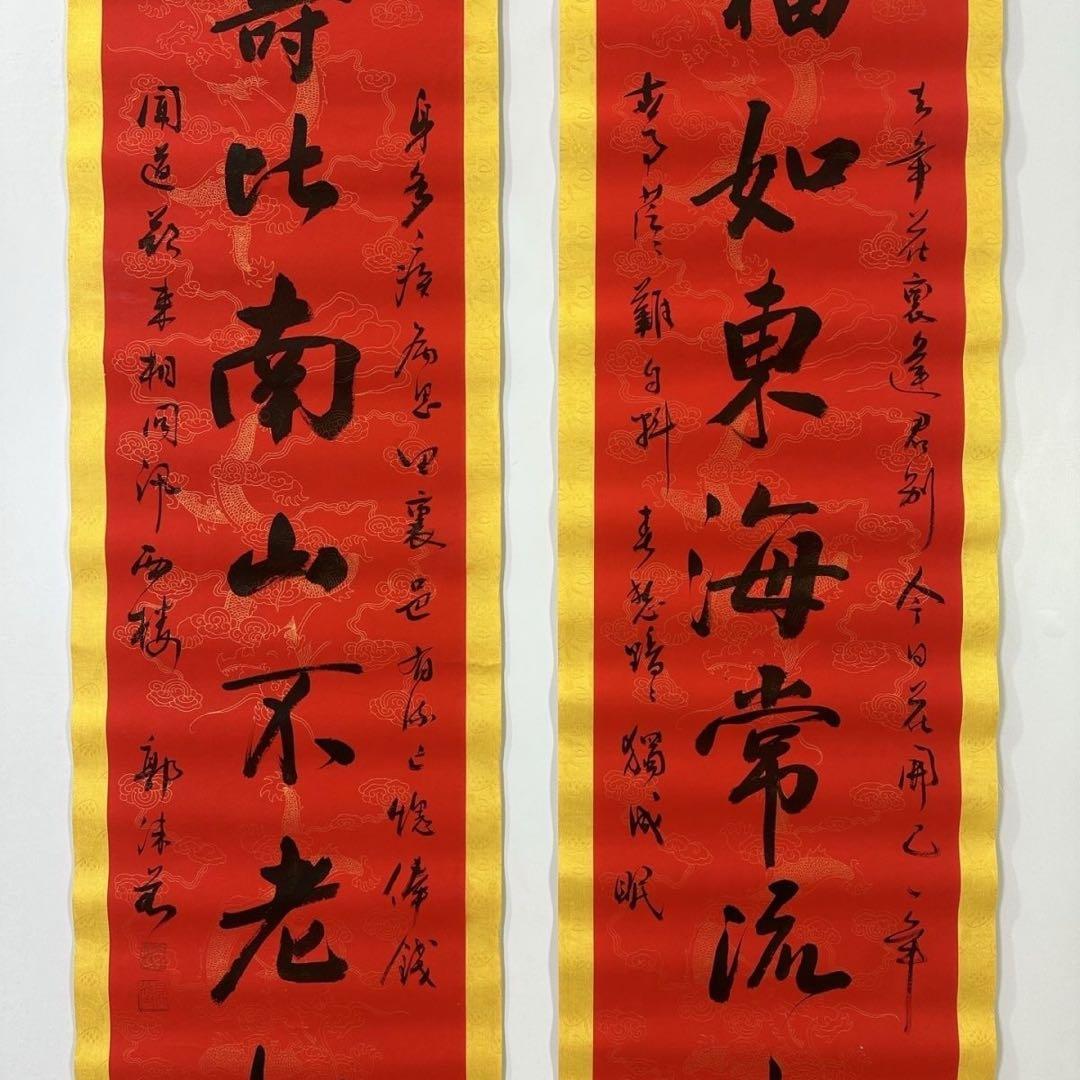 去年花裏逢君別今日花開已一年
福如東海常流
世事茫々難自料春愁黯々獨成眠
身多疾病思田裏邑有流亡愧俸錢
壽比南山不老
聞道欲来相問訊西楼
郭沫若